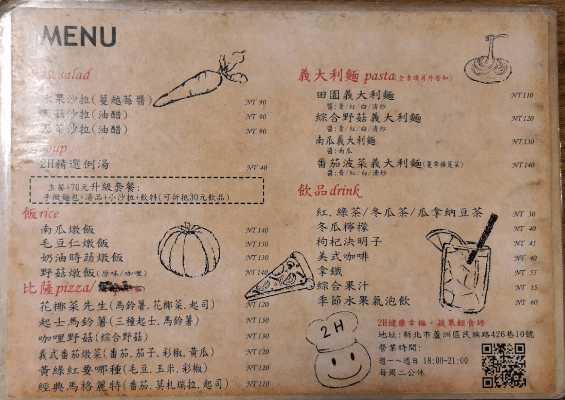 MENU
salad
水果沙拉(蔓越莓醬) NT 90
菇沙拉(油醋) NT 90
沙拉(油醋) NT 90
soup
2H精選例湯 NT 40
主餐+70元升級套餐:
手做麵包+湯品+小沙拉+飲料(可折抵30元飲品)
飯rice
南瓜燉飯 NT 140
毛豆仁燉飯 NT 130
奶油時蔬燉飯 NT 130
野菇燉飯(原味/咖哩) NT 140
比薩pizza/
花椰菜先生(馬鈴薯.花椰菜.起司) NT 120
起士馬鈴薯(三種起士.馬鈴薯) NT 130
咖哩野菇(綜合野菇) NT 130
義式番茄燉菜(番茄.茄子.彩椒.黃瓜) NT 120
黃綠紅要哪種(毛豆.玉米.彩椒) NT 120
經典馬格麗特(番茄.莫札瑞拉.起司) NT 110
義大利麵 pasta
田園義大利麵 NT 110
醬:青/紅/白/清炒
綜合野菇義大利麵 NT 120
醬:青/紅/白/清炒
南瓜義大利麵 NT 130
醬:南瓜
番茄波菜義大利麵 NT 140
醬:青/紅/白/清炒
飲品drink
紅.綠茶/冬瓜茶/瓜拿納豆茶 NT 30
冬瓜檸檬 NT 40
枸杞決明子 NT 45
美式咖啡 NT 40
拿鐵 NT 55
綜合果汁 NT 55
季節水果氣泡飲 NT 60
2H
2H健康幸福.蔬果輕食坊
地址:新北市蘆洲區民族路426巷10號
營業時間:
週一~週日 18:00-21:00
每周二公休